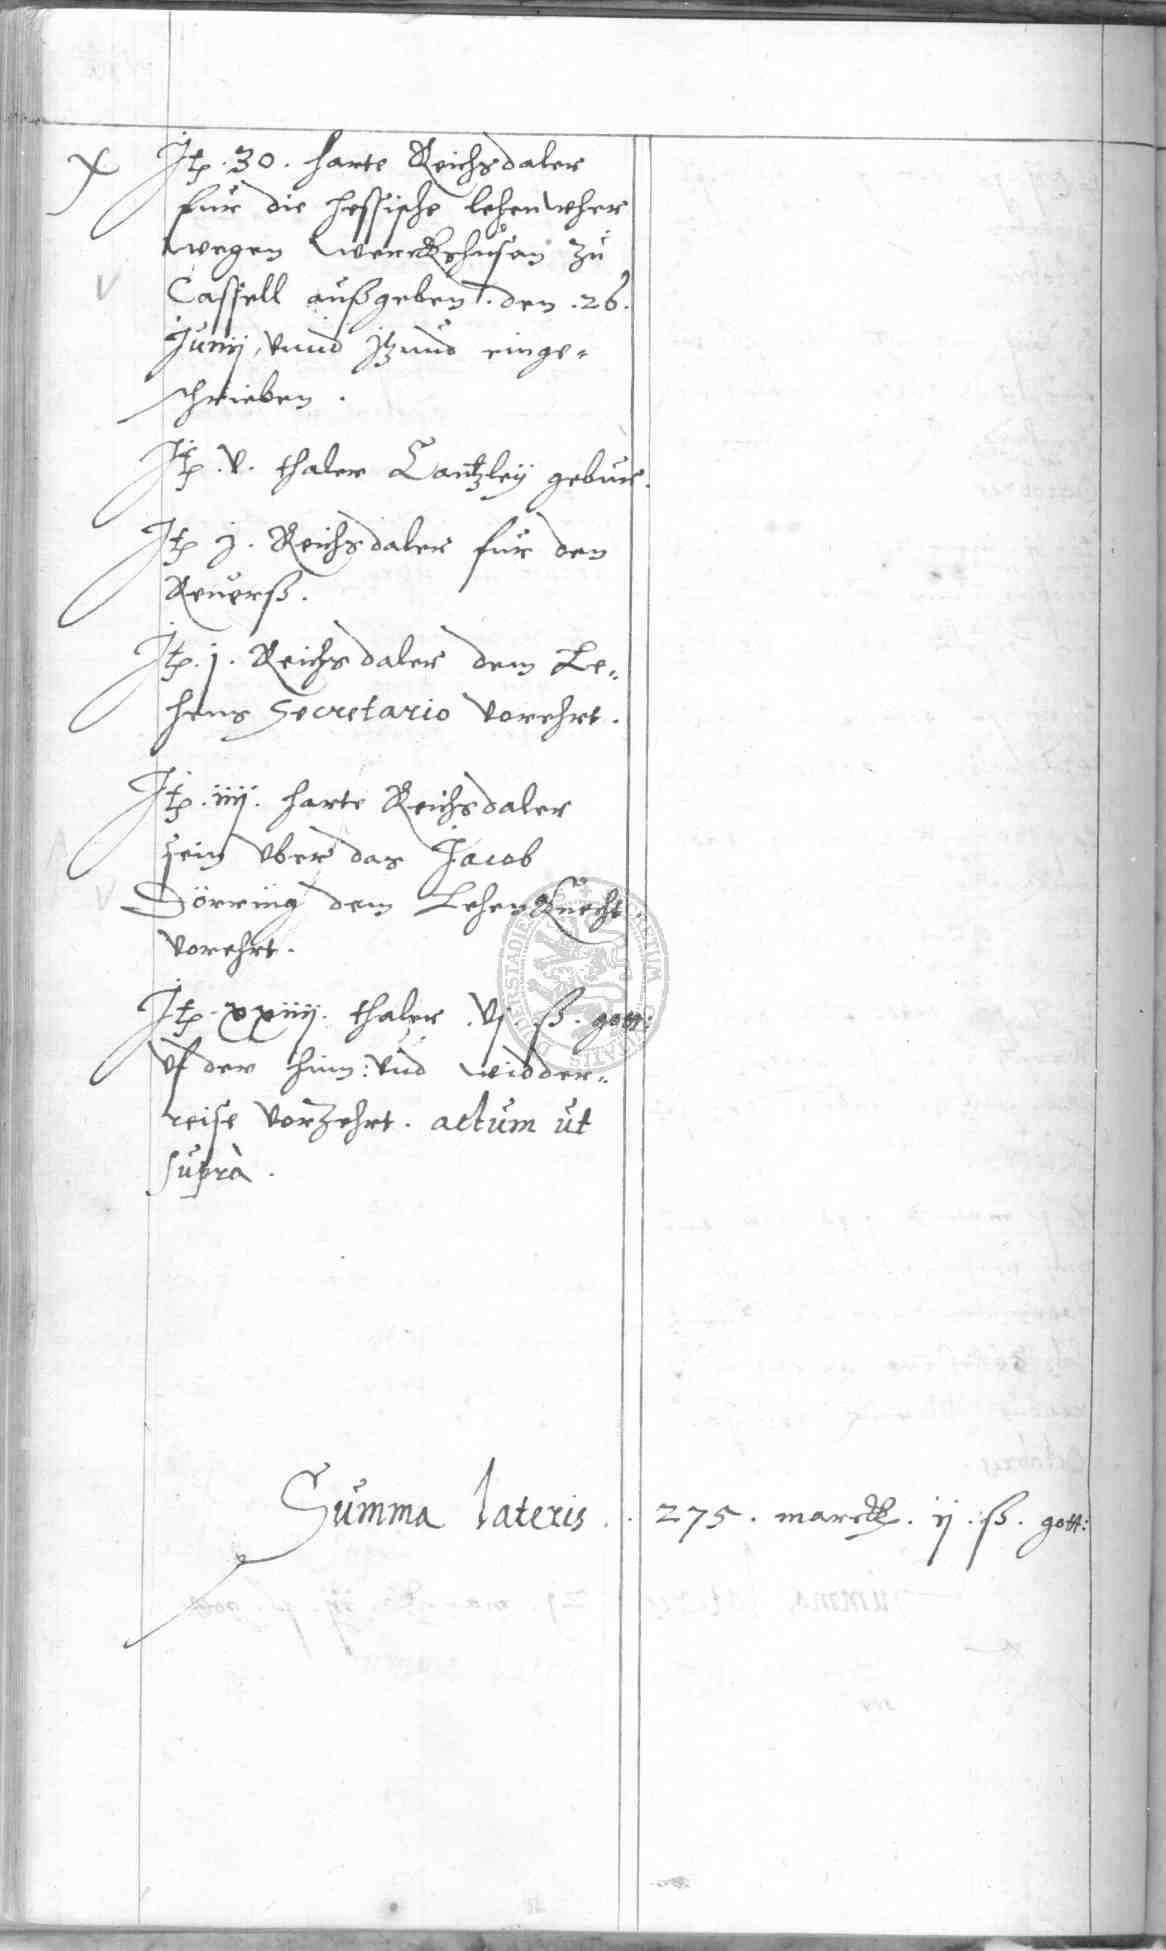 Itp. 30. harte Reichsdaler
fur die hessische lehen wher
wegen werckshusen zu
Cassell außgeben. den .26.
Junij, vnnd Itzund einge„
schrieben .
Itp. v. thaler Cantzleÿ gebur.
Itp j. Reichsdaler fur den
Reuerß.
Itp. j. Reichsdaler dem Le„
hens Secretario vorehrt.
Itp. iiij. harte Reichsdaler
sein vber das Jacob
Dörring dem Lehen Knecht
vorehrt.
Itp. xxiiij. thaler .vj ß. gott:
vf der hinn: vnd widder„
reise vorzehrt. actum ut
suprà .
Summa lateris . . 275 . marck . ij . ß . gott: